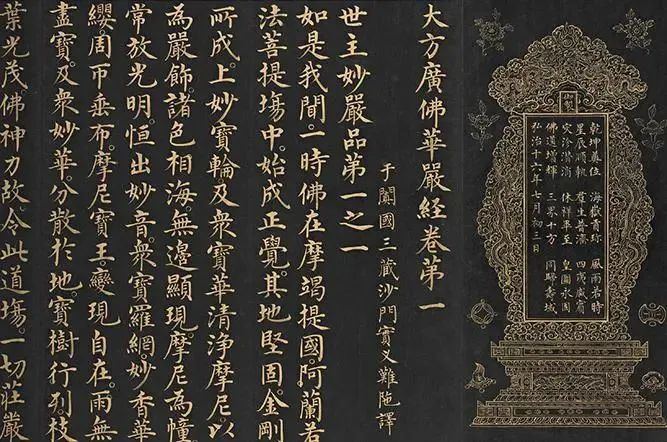 御製
乾坤奠位 海嶽貢珍 風雨若時
星辰順軌 羣生普濟 四夷咸賓
災沴潛消 休祥畢至 皇圖永固
佛道增輝 三界十方 同歸壽域
弘治十六年七月初三日
大方廣佛華嚴經卷第一
于闐國三藏沙門實叉難陁譯
世主妙嚴品第一之一
如是我聞。一時佛在摩竭提國。阿蘭若
法菩提場中。始成正覺。其地堅固。金剛
所成。上妙寶輪及衆寶華清淨摩尼以
為嚴飾。諸色相海無邊顯現摩尼為幢
常放光明。恒出妙音。衆寶羅網。妙香華
纓。周帀垂布。摩尼寶王。變現自在。雨無
盡寶。及衆妙華。分散於地。寶樹行列。枝
葉光茂。佛神力故。令此道場。一切莊嚴